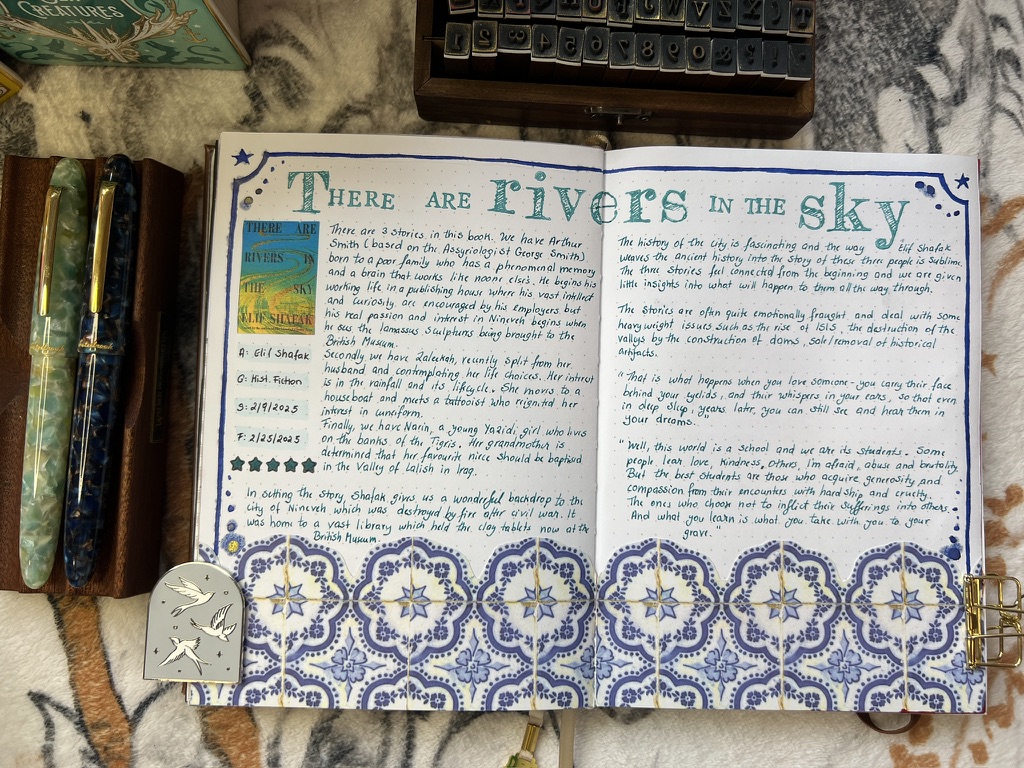 CREATURES
THERE ARE rivers IN THE sky
THERE ARE
RIVERS IN
THE SKY
ELIF SHAFAK
A: Elif Shafak
G: Hist. Fiction
S: 2/9/2025
F: 2/25/2025
There are 3 stories in this book. We have Arthur
Smith (based on the Assyriologist George Smith)
born to a poor family who has a phenomenal memory
and a brain that works like noone else's. He begins his
working life in a publishing house where his vast intellect
and curiosity are encouraged by his employers but
his real passion and interest in Nineveh begins when
he sees the lamassus sculptures being brought to the
British Museum.
Secondly we have Zaleekah, recently split from her
husband and contemplating her life choices. Her interest
is in the rainfall and its lifecycle. She moves to a
houseboat and meets a tattooist who reignited her
interest in cuneiform.
Finally, we have Narin, a young Yazidi girl who lives
on the banks of the Tigris. Her grandmother is
determined that her favourite niece should be baptised
in the Valley of Lalish in Iraq.
In setting the story, Shafak gives us a wonderful backdrop to the
city of Nineveh which was destroyed by fire after civil war. It
was home to a vast library which held the clay tablets now at the
British Museum.
The history of the city is fascinating and the way Elif Shafak
weaves the ancient history into the story of these three people is sublime.
The three stories feel connected from the beginning and we are given
little insights into what will happen to them all the way through.
The stories are often quite emotionally fraught and deal with some
heavy weight issues such as the rise of ISIS, the destruction of the
vallys by the construction of dams, sale/removal of historical
artifacts.
"That is what happens when you love someone - you carry their face
behind your eyelids, and their whispers in your ears, so that even
in deep sleep, years later, you can still see and hear them in
your dreams."
"Well, this world is a school and we are its students. Some
people lear love, kindness. Others, i'm afraid, abuse and brutality.
But the best students are those who acquire generosity and
compassion from their encounters with hardship and cruelty.
The ones who choose not to inflict their sufferings into others.
And what you learn is what you take with you to your
grave."